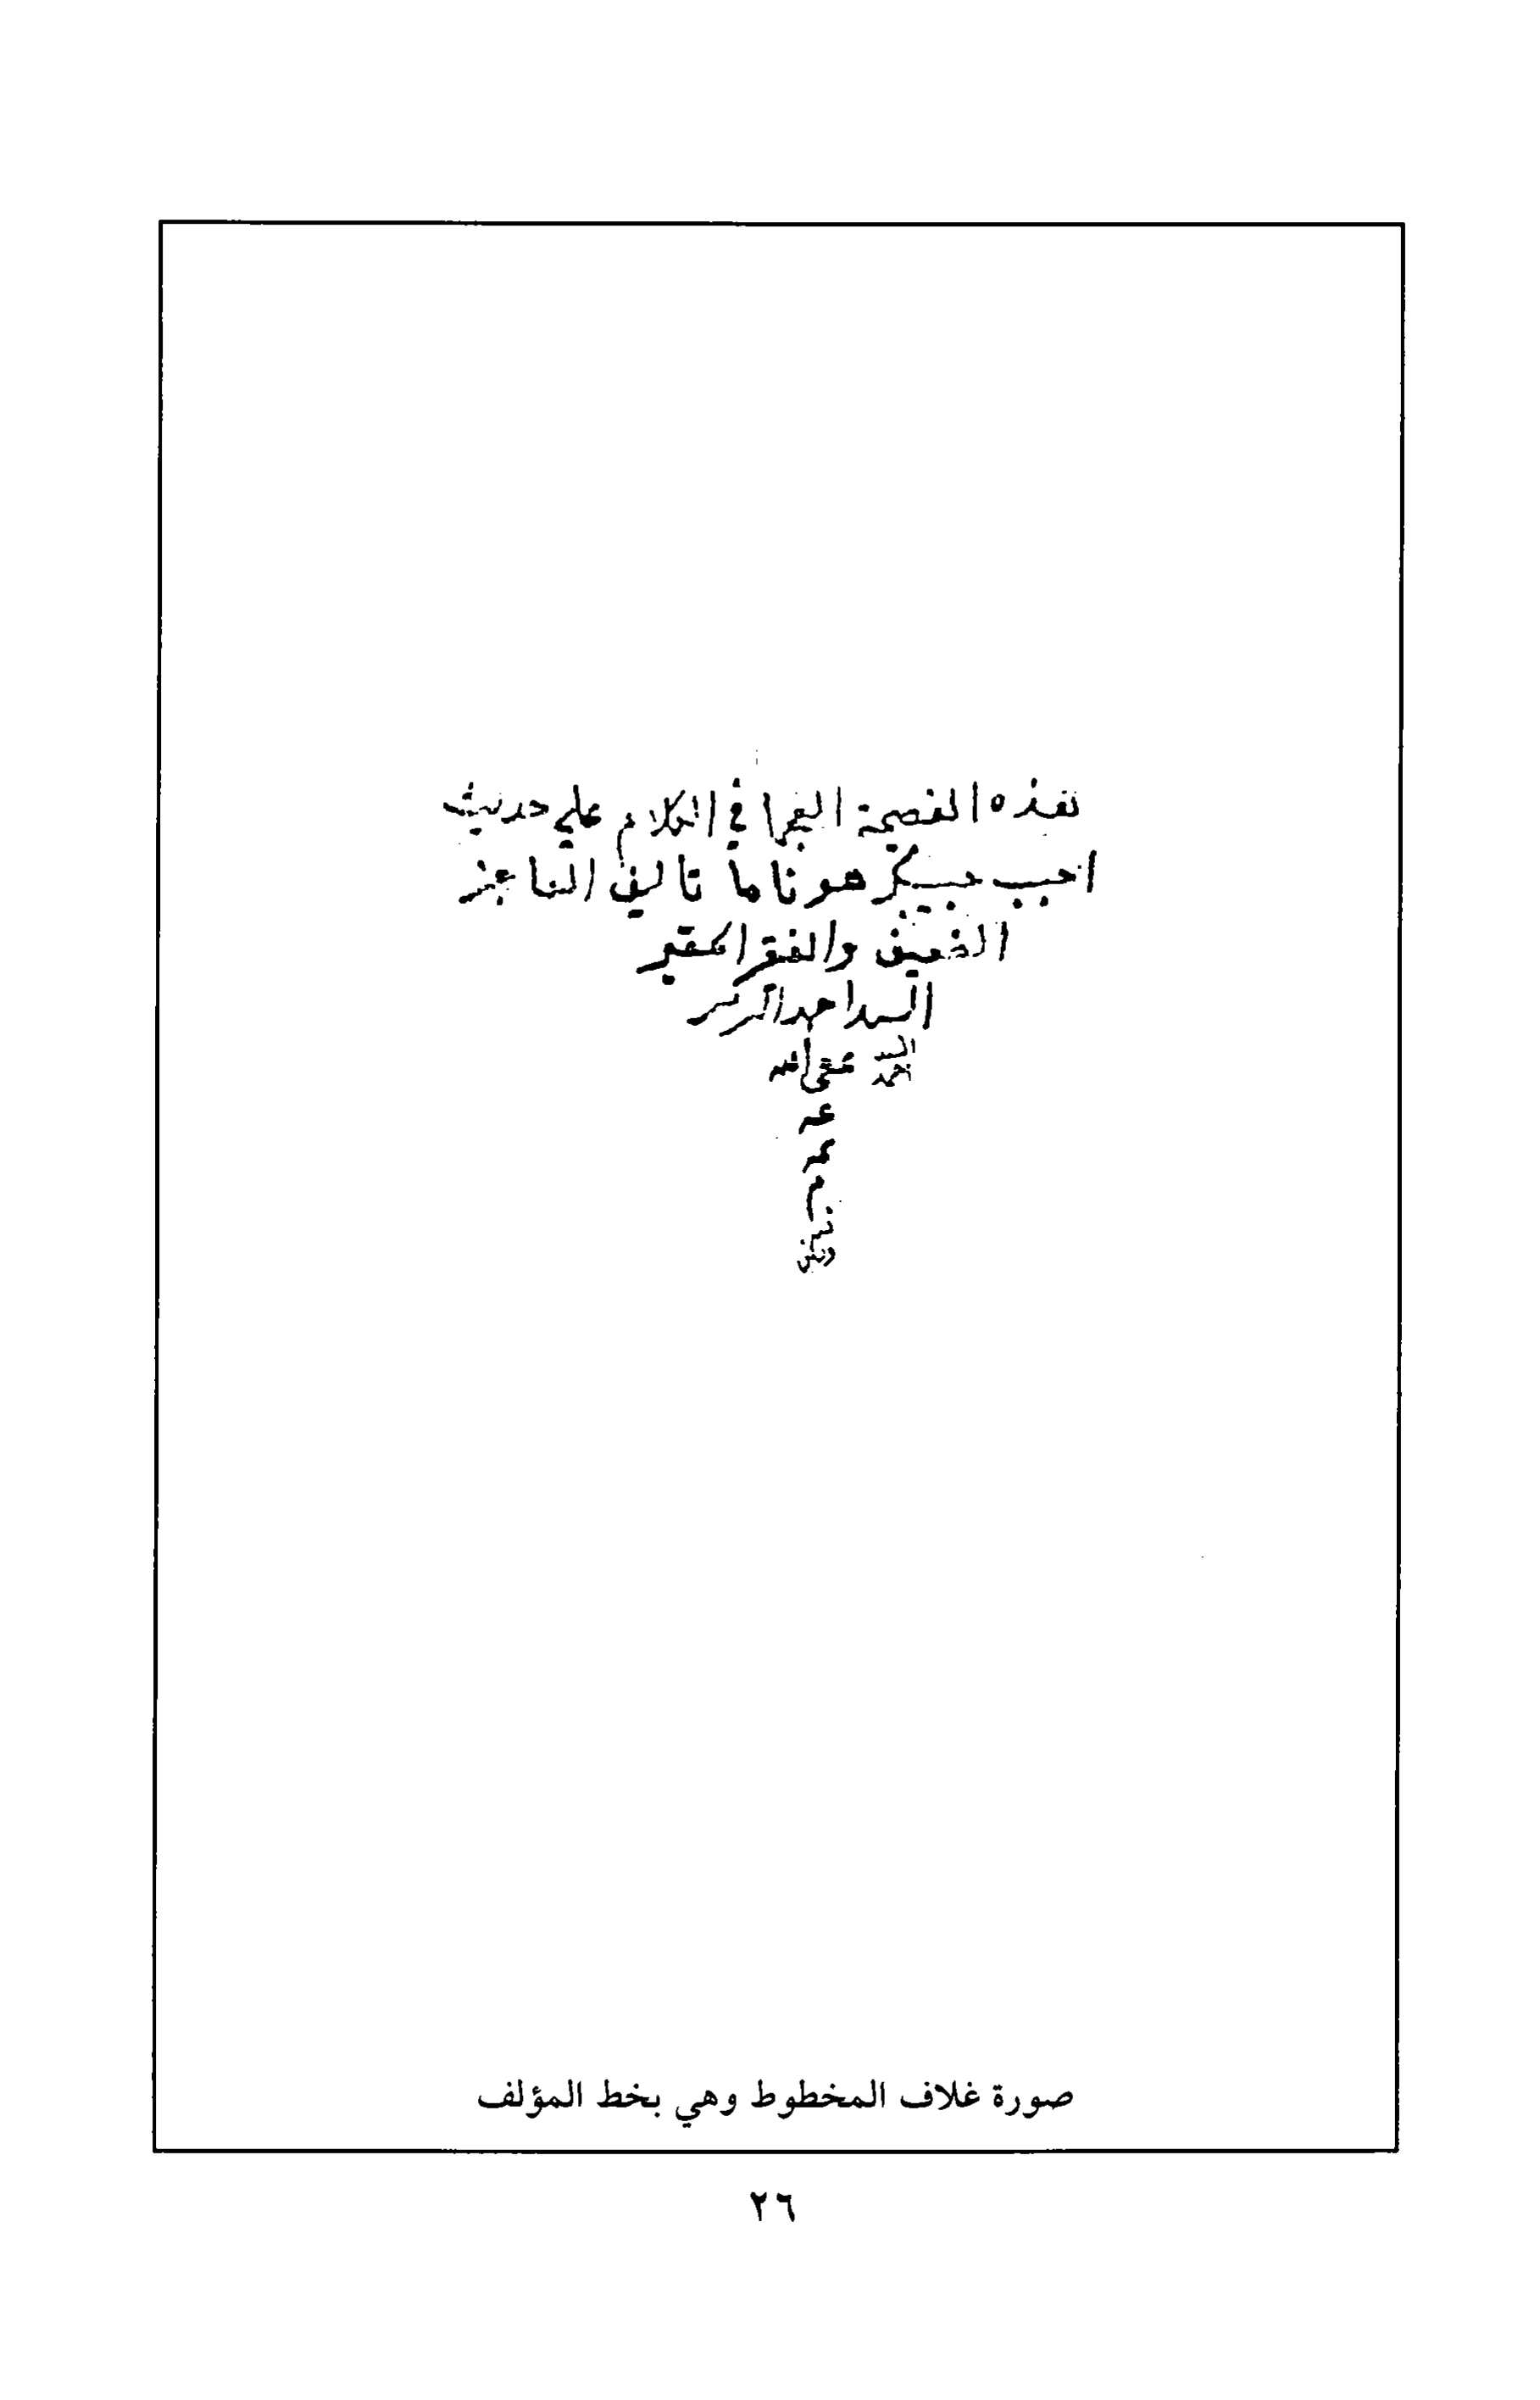 هذه النصيحة الغرا في الكلام علي حديث
احبب حبيبك هونا ما تاليف العاجز
الضعيف والفقير الحقير
السيد احمد
السيد احمد عفى الله
عنه
م
صورة غلاف المخطوط وهي بخط المؤلف
٢٦